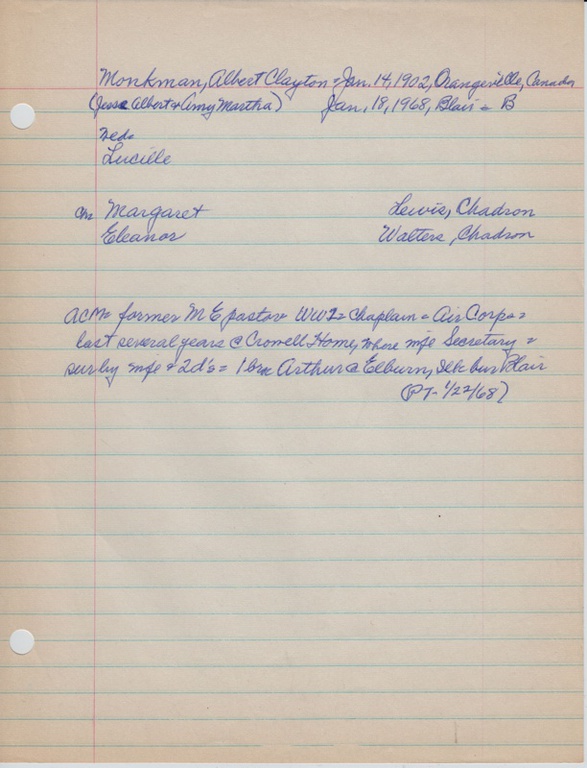 Monkman, Albert Clayton = Jan. 14, 1902, Orangeville, Canada
(Jesse Albert & Amy Martha) Jan. 18, 1968, Blair = B
Wed =
Lucille
Ch: Margaret Lewis, Chadron
Eleanor Walters, Chadron
ACM = former M E pastor = WW2 = Chaplain = Air Corps =
last several years @ Crowell Home, where wife Secretary =
sur by wife & 2 d's = 1 bro Arthur @ Elburn, Ill = bur Blair
(PT - 1/22/68)